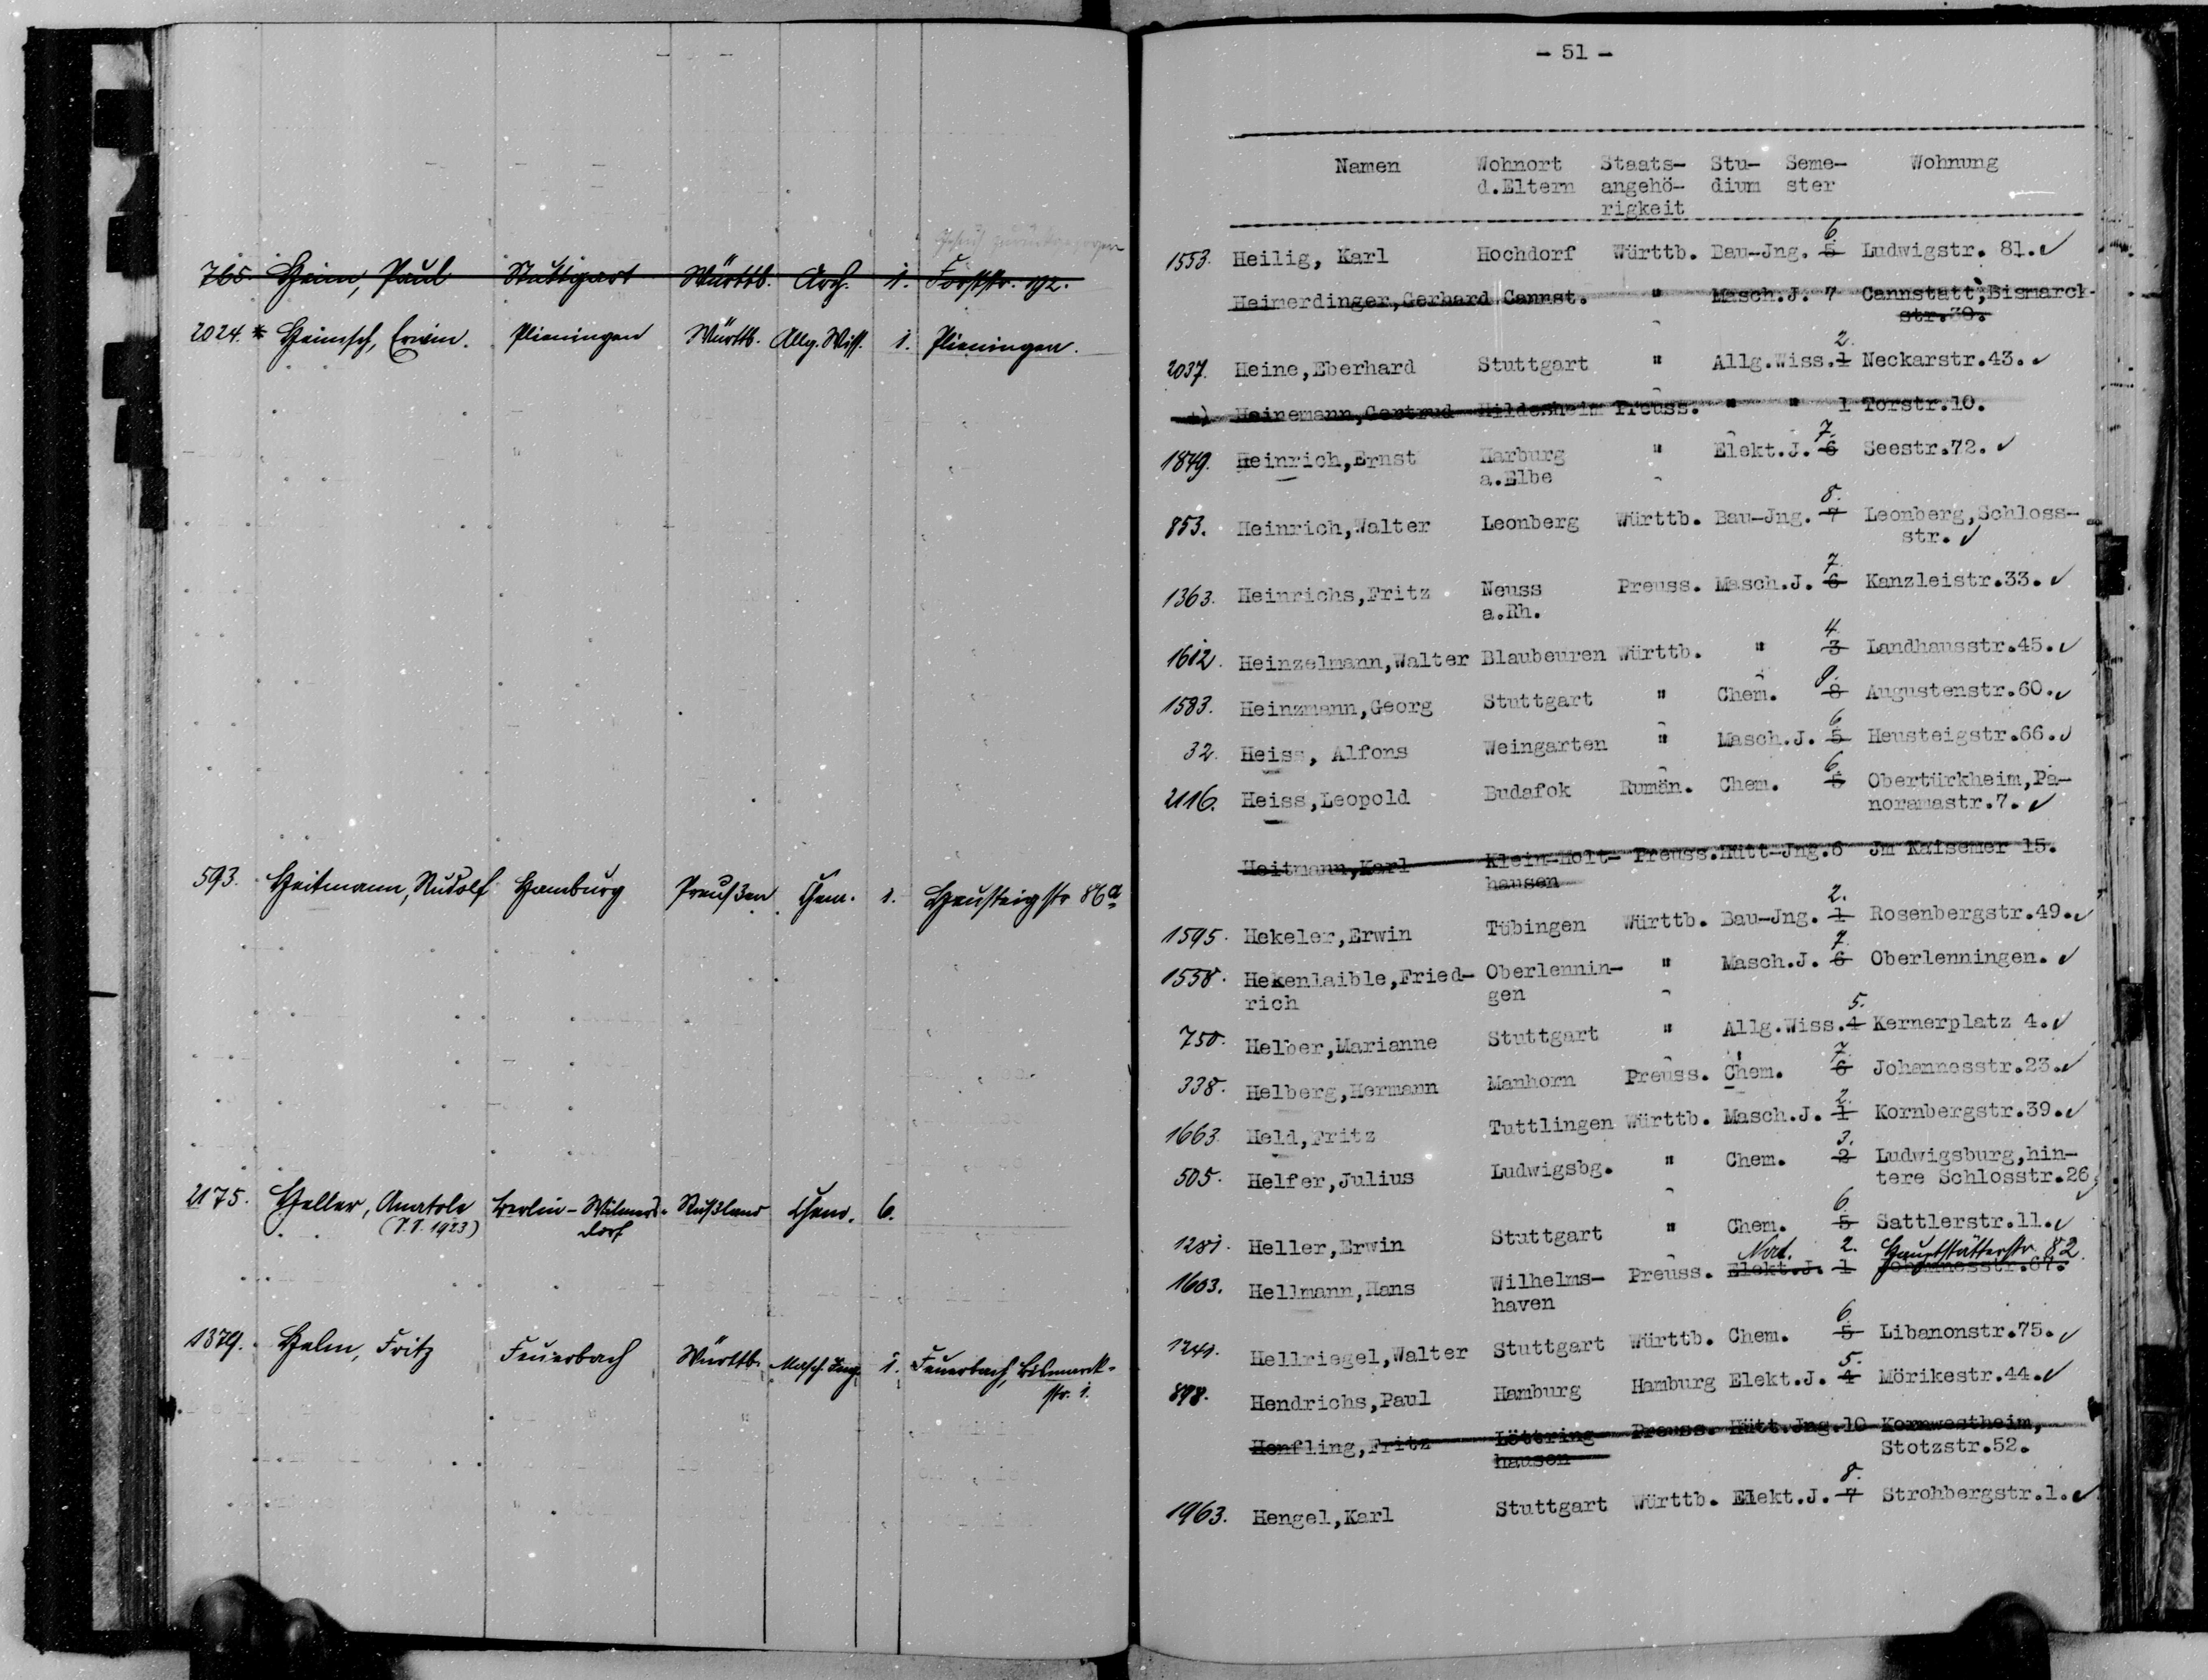 765. Heim, Paul Stuttgart Württb. Arch. 1. Forststr. 192.
2024. * Heimsch, Erwin. Plieningen Württb. Allg. Wiss. 1. Plieningen.
593. Heitmann, Rudolf Hamburg Preußen Chem. 1. Heusteigstr 86a
2175. Heller, Anatole Berlin-Wilmers- Rußland Chem. 6.
(S.S. 1923) dorf
1379. Helm, Fritz Feuerbach Württb. Masch. Ing. 1. Feuerbach, Bismarck-
str. 1.
- 51 -
Namen Wohnort Staats- Stu- Seme- Wohnung
d.Eltern angehö- dium ster
rigkeit
6.
1553. Heilig, Karl Hochdorf Württb. Bau-Jng. 5 Ludwigstr. 81. ✓
Heimerdinger,Gerhard Cannst. " Masch.J. 7 Cannstatt,Bismarck-
str.30.
2.
2037. Heine,Eberhard Stuttgart " Allg.Wiss.1 Neckarstr.43. ✓
+) Heinemann,Gertrud Hildesheim Preuss. " " 1 Torstr.10.
7.
1849. Heinrich,Ernst Harburg " Elekt.J. 6 Seestr.72. ✓
a.Elbe
8.
853. Heinrich,Walter Leonberg Württb. Bau-Jng. 7 Leonberg,Schloss-
str. ✓
7.
1363. Heinrichs,Fritz Neuss Preuss. Masch.J. 6 Kanzleistr.33. ✓
a.Rh.
4.
1612. Heinzelmann,Walter Blaubeuren Württb. " 3 Landhausstr.45. ✓
9.
1583. Heinzmann,Georg Stuttgart " Chem. 8 Augustenstr.60. ✓
6.
32. Heiss, Alfons Weingarten " Masch.J. 5 Heusteigstr.66. ✓
6.
2116. Heiss,Leopold Budafok Rumän. Chem. 5 Obertürkheim,Pa-
noramastr.7. ✓
Heitmann,Karl Klein-Holt- Preuss.Hütt-Jng.6 Jm Kaisemer 15.
hausen
2.
1595. Hekeler,Erwin Tübingen Württb. Bau-Jng. 1 Rosenbergstr.49. ✓
7.
1558. Hekenlaible,Fried- Oberlennin- " Masch.J. 6 Oberlenningen. ✓
rich gen
5.
750. Helber,Marianne Stuttgart " Allg.Wiss.4 Kernerplatz 4. ✓
7.
338. Helberg,Hermann Manhorn Preuss. Chem. 6 Johannesstr.23. ✓
2.
1663. Held,Fritz Tuttlingen Württb. Masch.J. 1 Kornbergstr.39. ✓
3.
505. Helfer,Julius Ludwigsbg. " Chem. 2 Ludwigsburg,hin-
tere Schlosstr.26 ✓
6.
1281. Heller,Erwin Stuttgart " Chem. 5 Sattlerstr.11. ✓
2. Hauptstätterstr. 82.
1603. Hellmann,Hans Wilhelms- Preuss. Elekt.J. 1 Johannesstr.67.
haven
6.
1241. Hellriegel,Walter Stuttgart Württb. Chem. 5 Libanonstr.75. ✓
5.
898. Hendrichs,Paul Hamburg Hamburg Elekt.J. 4 Mörikestr.44. ✓
Henfling,Fritz Löttring Preuss. Hütt.Jng.10 Kornwestheim,
hausen Stotzstr.52.
8.
1963. Hengel,Karl Stuttgart Württb. Elekt.J. 7 Strohbergstr.1. ✓